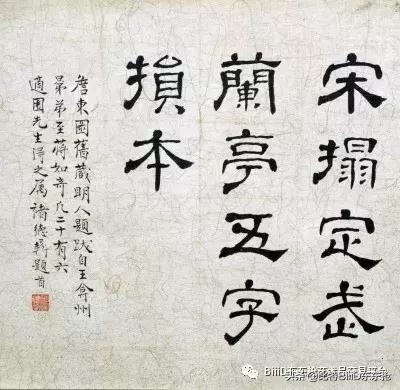 宋搨定武
蘭亭五字
損本
詹東圖舊藏明人題跋自王弇州
昆弟至將如奇凡二十有六
適園先生得之屬褚德彝題首